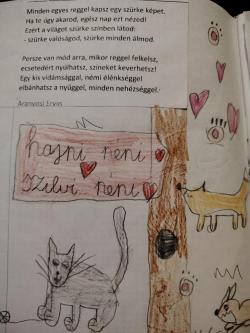 Minden egyes reggel kapsz egy szürke képet.
Ha te úgy akarod, egész nap ezt nézed!
Ezért a világot szürke színben látod:
- szürke valóságod, szürke minden álmod.
Persze van mód arra, mikor reggel felkelsz,
ecsetedért nyúlhatsz, színeket keverhetsz!
Egy kis vidámsággal, némi élénkséggel
elbánhatsz a nyűggel, minden nehézséggel.
Aranyosi Ervin
hajni neni
Szilvi neni